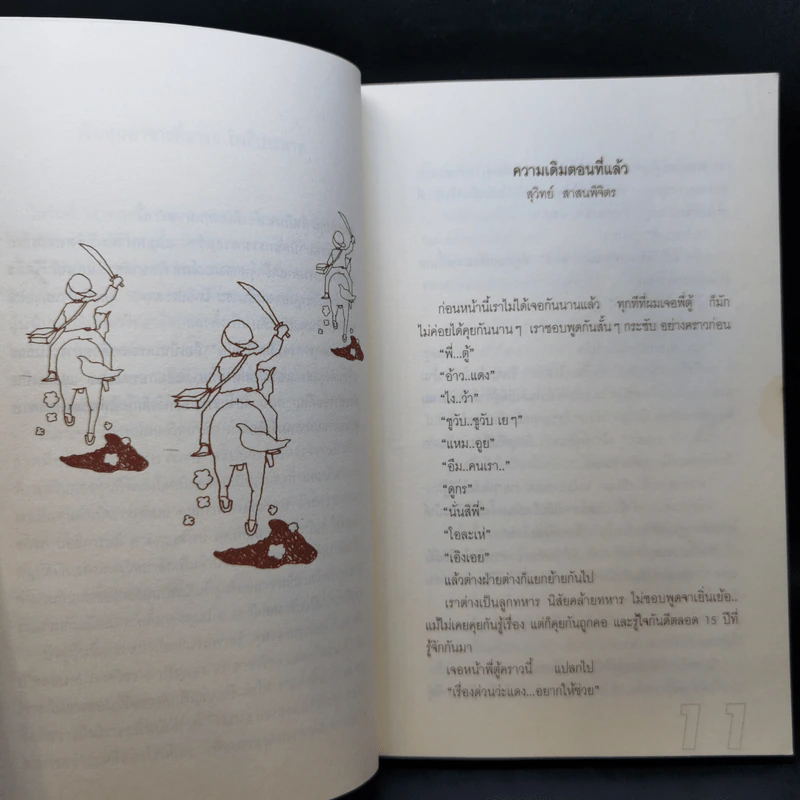 ความเดิมตอนที่แล้ว
สุวิทย์ สาสนพิจิตร
ก่อนหน้านี้เราไม่ได้เจอกันนานแล้ว ทุกทีที่ผมเจอพี่ตู้ ก็มัก
ไม่ค่อยได้คุยกันนานๆ เราชอบพูดกันสั้นๆ กระชับ อย่างคราวก่อน
“พี่...ตู้”
“อ้าว..แดง”
“ไง..ว้า”
“ชูวับ..ชูวับ เยๆ”
“แหม..อูย”
“อืม..คนเรา..”
“ดูกร”
“นั่นสิพี่”
“โอละเห่”
“เอิงเอย”
แล้วต่างฝ่ายต่างก็แยกย้ายกันไป
เราต่างเป็นลูกทหาร นิสัยคล้ายทหาร ไม่ชอบพูดจาเยิ่นเย้อ..
แม้ไม่เคยคุยกันรู้เรื่อง แต่ก็คุยกันถูกคอ และรู้ใจกันดีตลอด 15 ปีที่
รู้จักกันมา
เจอหน้าพี่ตู้คราวนี้ แปลกไป
“เรื่องด่วนว่ะแดง...อยากให้ช่วย”
11